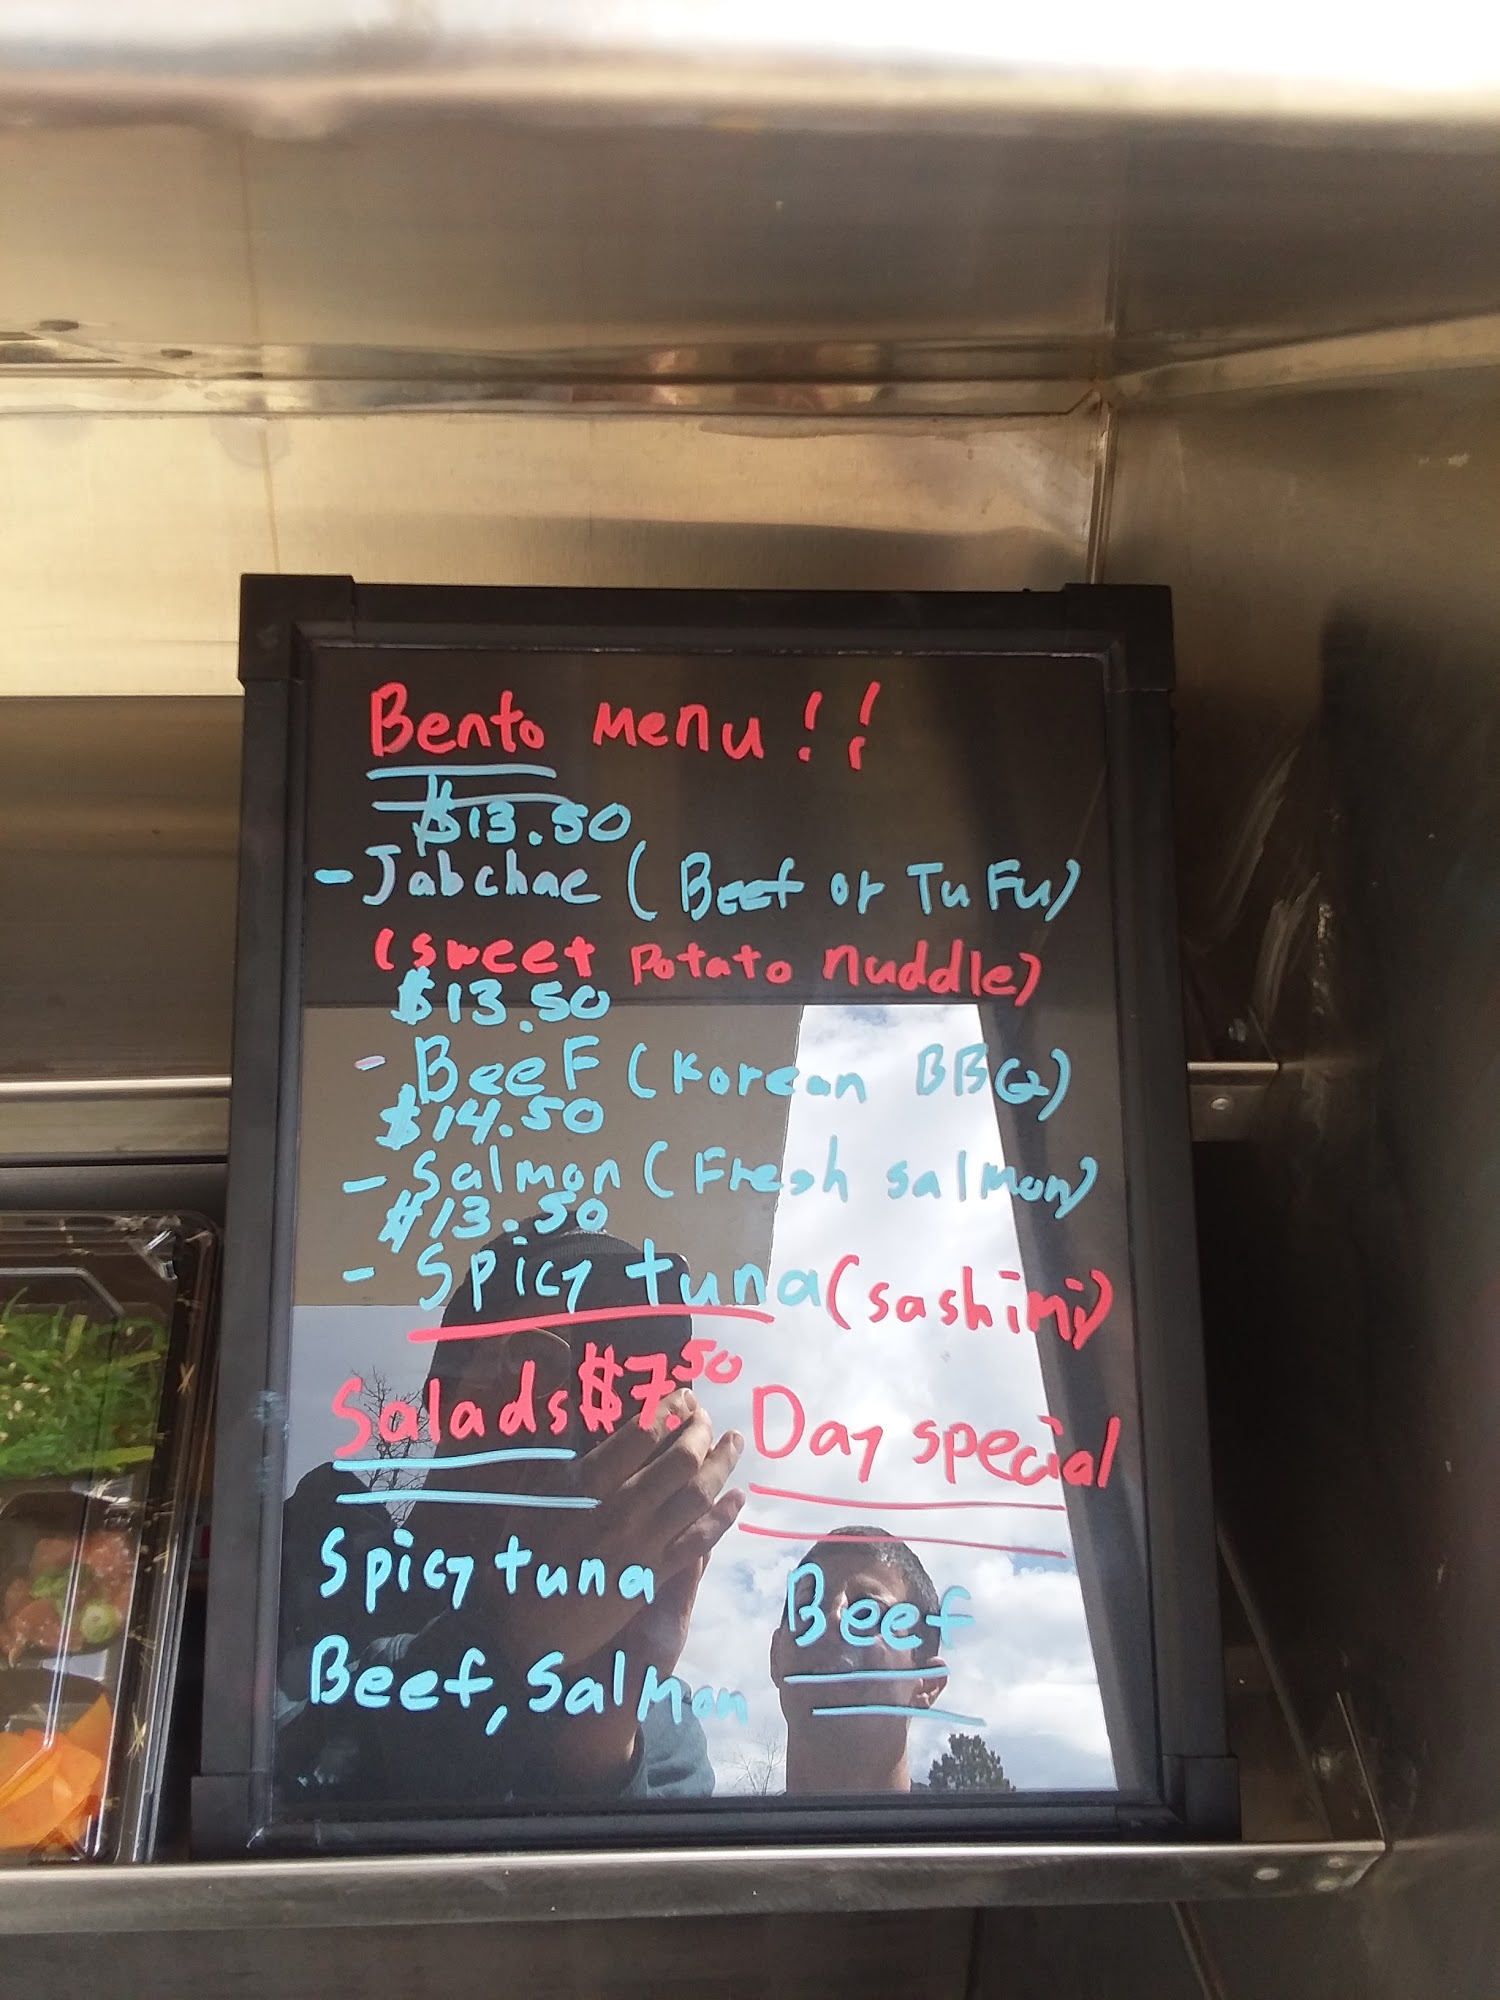 Bento Menu!!
$13.50
- Jabchae (Beef or TuFu)
(sweet potato nuddle)
$13.50
- BeeF (Korean BBQ)
$14.50
- Salmon (Fresh salmon)
$13.50
- Spicy tuna (sashimi)
Salads $7.50
Day special
Spicy tuna
Beef, Salmon
Beef